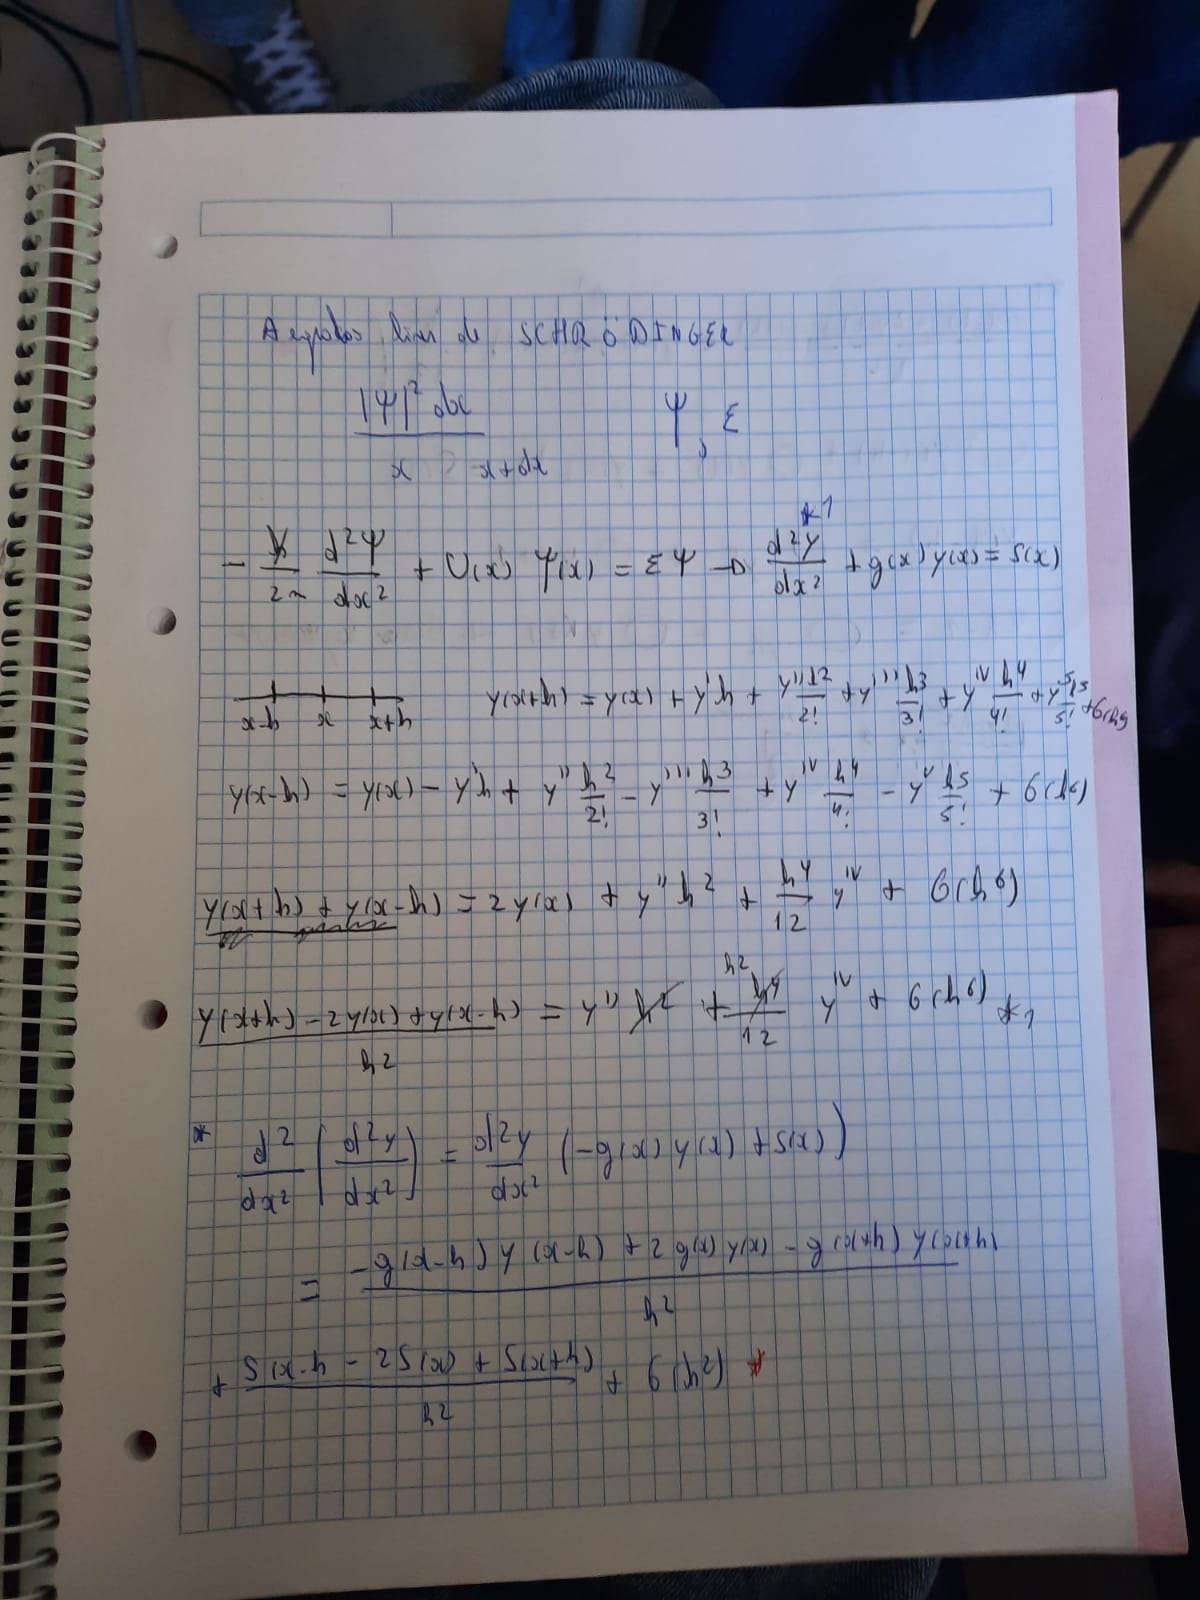 de SCHRÖDINGER
|Ψ|² dx Ψ, ε
x x+dx
- ħ/2m d²Ψ/dx² + U(x) Ψ(x) = εΨ → d²y/dx² *1 + g(x) y(x) = S(x)
x-h x x+h y(x+h) = y(x) + y'h + y''h²/2! + y'''h³/3! + y^IV h⁴/4! + y^V h⁵/5! + θ(h⁶)
y(x-h) = y(x) - y'h + y'' h²/2! - y''' h³/3! + y^IV h⁴/4! - y^V h⁵/5! + θ(h⁶)
y(x+h) + y(x-h) = 2y(x) + y''h² + h⁴/12 y^IV + θ(h⁶)
y(x+h) - 2y(x) + y(x-h) / h² = y'' + h²/12 y^IV + θ(h⁶) *1
* d²/dx² (d²y/dx²) = d²y/dx² (-g(x) y(x) + S(x))
= -g(x-h) y(x-h) + 2g(x) y(x) - g(x+h) y(x+h) / h²
+ S(x-h - 2S(x) + S(x+h) / h² + θ(h²) *